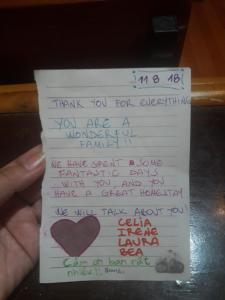 11 8 18
THANK YOU FOR EVERYTHING
YOU ARE A
WONDERFUL
FAMILY!!
WE HAVE SPENT SOME
FANTASTIC DAYS
WITH YOU, AND YOU
HAVE A GREAT HOMESTAY
WE WILL TALK ABOUT YOU!
CELIA
IRENE
LAURA
BEA
Cảm ơn bạn rất
nhiều!!